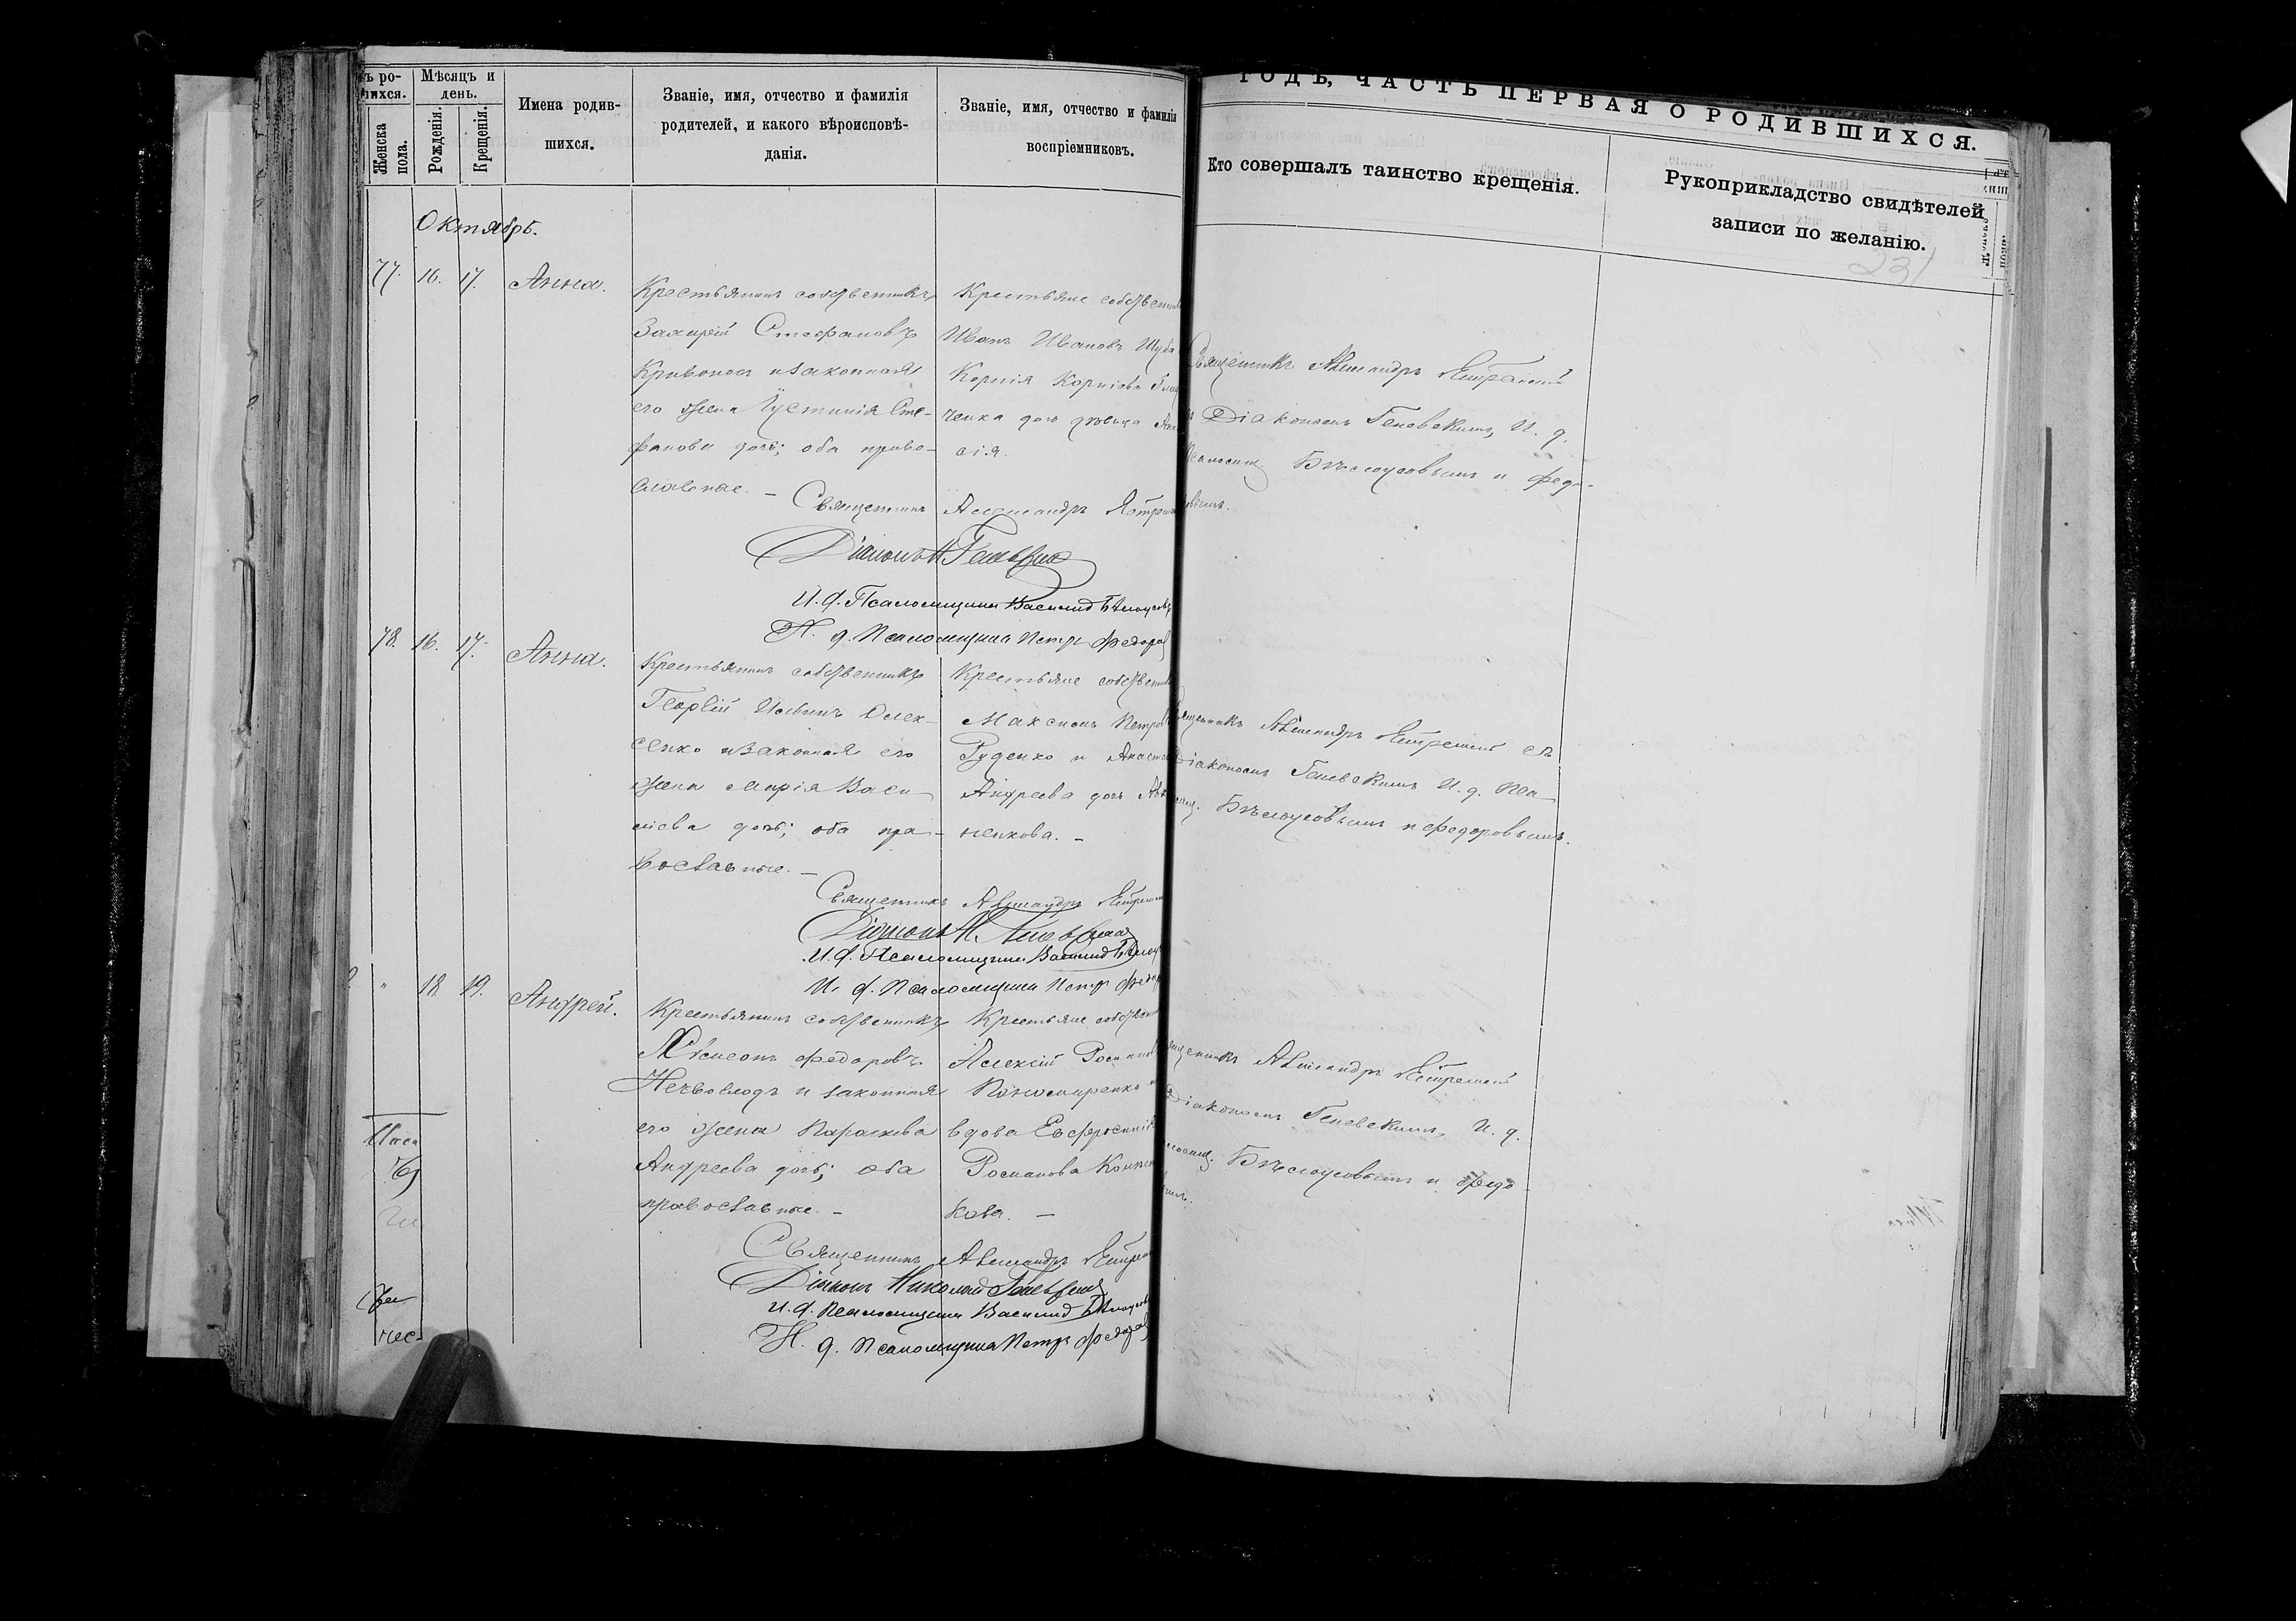 ГОДЪ, ЧАСТЬ ПЕРВАЯ О РОДИВШИХСЯ.
ъ ро-
шихся.
Женска пола.
Мѣсяцъ и день.
Рожденія.
Крещенія.
Имена родив-
шихся.
Званіе, имя, отчество и фамилія
родителей, и какого вѣроисповѣ-
данія.
Званіе, имя, отчество и фамилія
воспріемниковъ.
Кто совершалъ таинство крещенія.
Рукоприкладство свидѣтелей
записи по желанію.
231
Октябрь.
77. 16. 17. Анна.
Крестьянинъ собственникъ
Захарій Стефановъ
Кривонос и законная
его жена Іустинія Сте-
фанова дочь; оба право-
славные. –
Крестьяне собствен
Иванъ Ивановъ Шуба
Корнія Корніева
ченка дочь девица
сія.
Священникъ Александръ
Діакономъ Геневскимъ, И. д.
Псаломщ. Бѣлоусовымъ и Федо-
ровымъ.
Священникъ Александръ
Діаконъ Н. Геневскій
И. д. Псаломщика Василий Бѣлоусовъ
И. д. Псаломщика Петръ Федоров
78. 16. 17. Анна.
Крестьянинъ собственникъ
Георгій Ильинъ Олек-
сенко и законная его
жена Марія Васи-
лієва дочь; оба пра-
вославные. –
Крестьяне собствен
Максимъ Петров
Руденко и Анаста
Андреева дочь
ненкова. –
Священникъ Александръ съ
Діакономъ Геневскимъ И. д. Пса-
ломщ. Бѣлоусовымъ и Федоровымъ.
Священникъ Александръ
Діаконъ Н. Геневскій
И. д. Псаломщика Василий Бѣлоу
И. д. Псаломщика Петръ Федор
" 18. 19. Андрей.
Крестьянинъ собственникъ
Симеонъ Федоровъ
Нечволодъ и законная
его жена Параскева
Андреева дочь; оба
православные. –
Крестьяне собствен
Алексій Романов
Пономаренко и
вдова Евфросинія
Романова
кова. –
Священникъ Александръ
Діакономъ Геневскимъ, И. д.
Псаломщ. Бѣлоусовымъ и Федо-
Священникъ Александръ
Діаконъ Николай Геневскій
И. д. Псаломщика Василий Бѣлоусов
И. д. Псаломщика Петръ Федоров